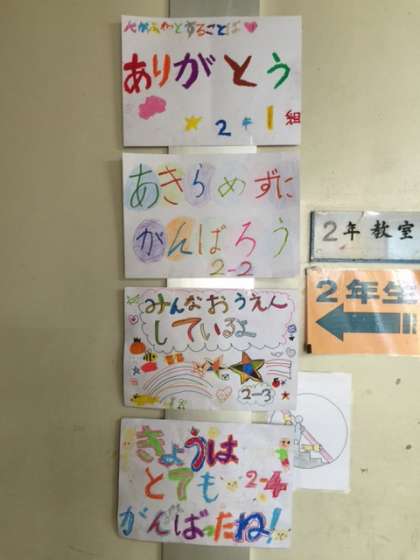 ありがとう
2年1組
あきらめずに
がんばろう
2-2
みんなおうえん
しているよ
2-3
きょうは
とても
2-4
がんばったね!
2年教室
2年生